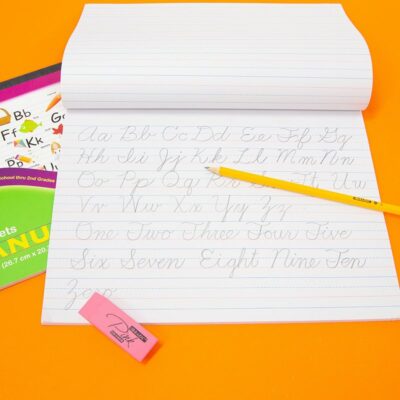 Aa Bb Cc Dd Ee Ff Gg
Hh Ii Jj Kk Ll Mm Nn
Oo Pp Qq Rr Ss Tt Uu
Vv Ww Xx Yy Zz
One Two Three Four Five
Six Seven Eight Nine Ten
Zero
Bb
Ff
Kk
Pp
school thru 2nd Grades
ets
ANU
(26.7 cm x 20.
Pink